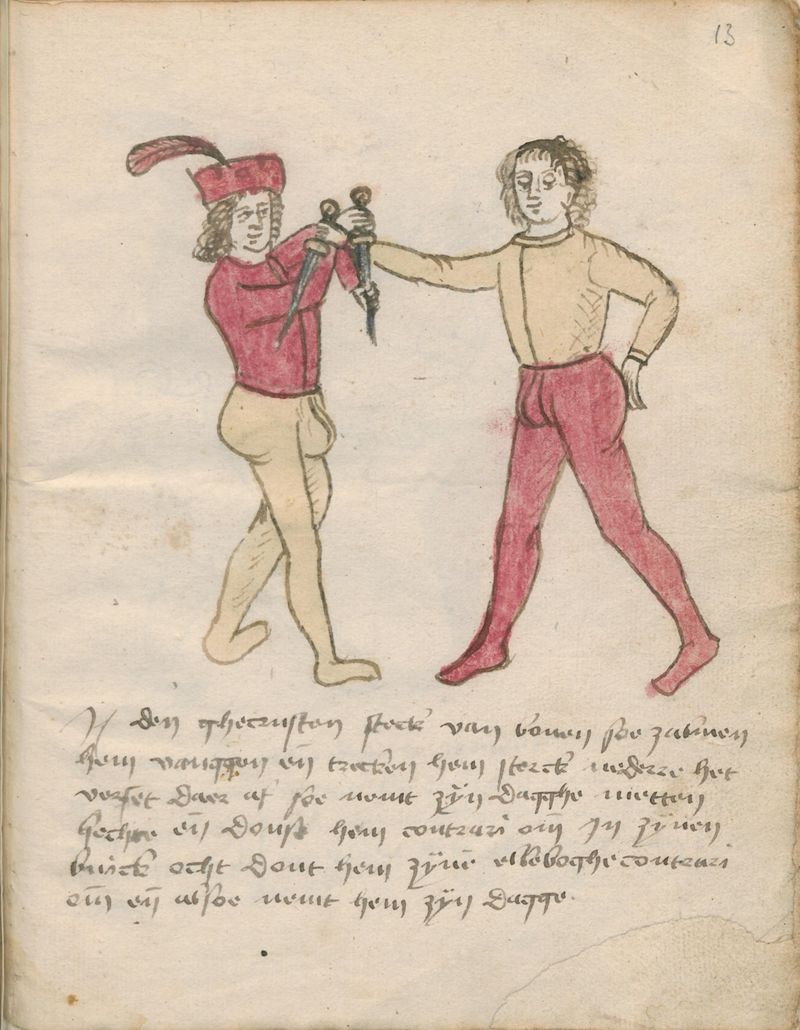 13
In den ghecrusten steck van boven soe zalmen
hem vangen en̄ trecken hem sterck nederre het
verset daer af soe nemt zÿn dagghe metten
hechte en̄ doust hem contrari om̄ In zÿnen
buÿck ocht dout hem zÿnē elleboghe contrari
om̄ en̄ alsoe nemt hem zÿn dagge.